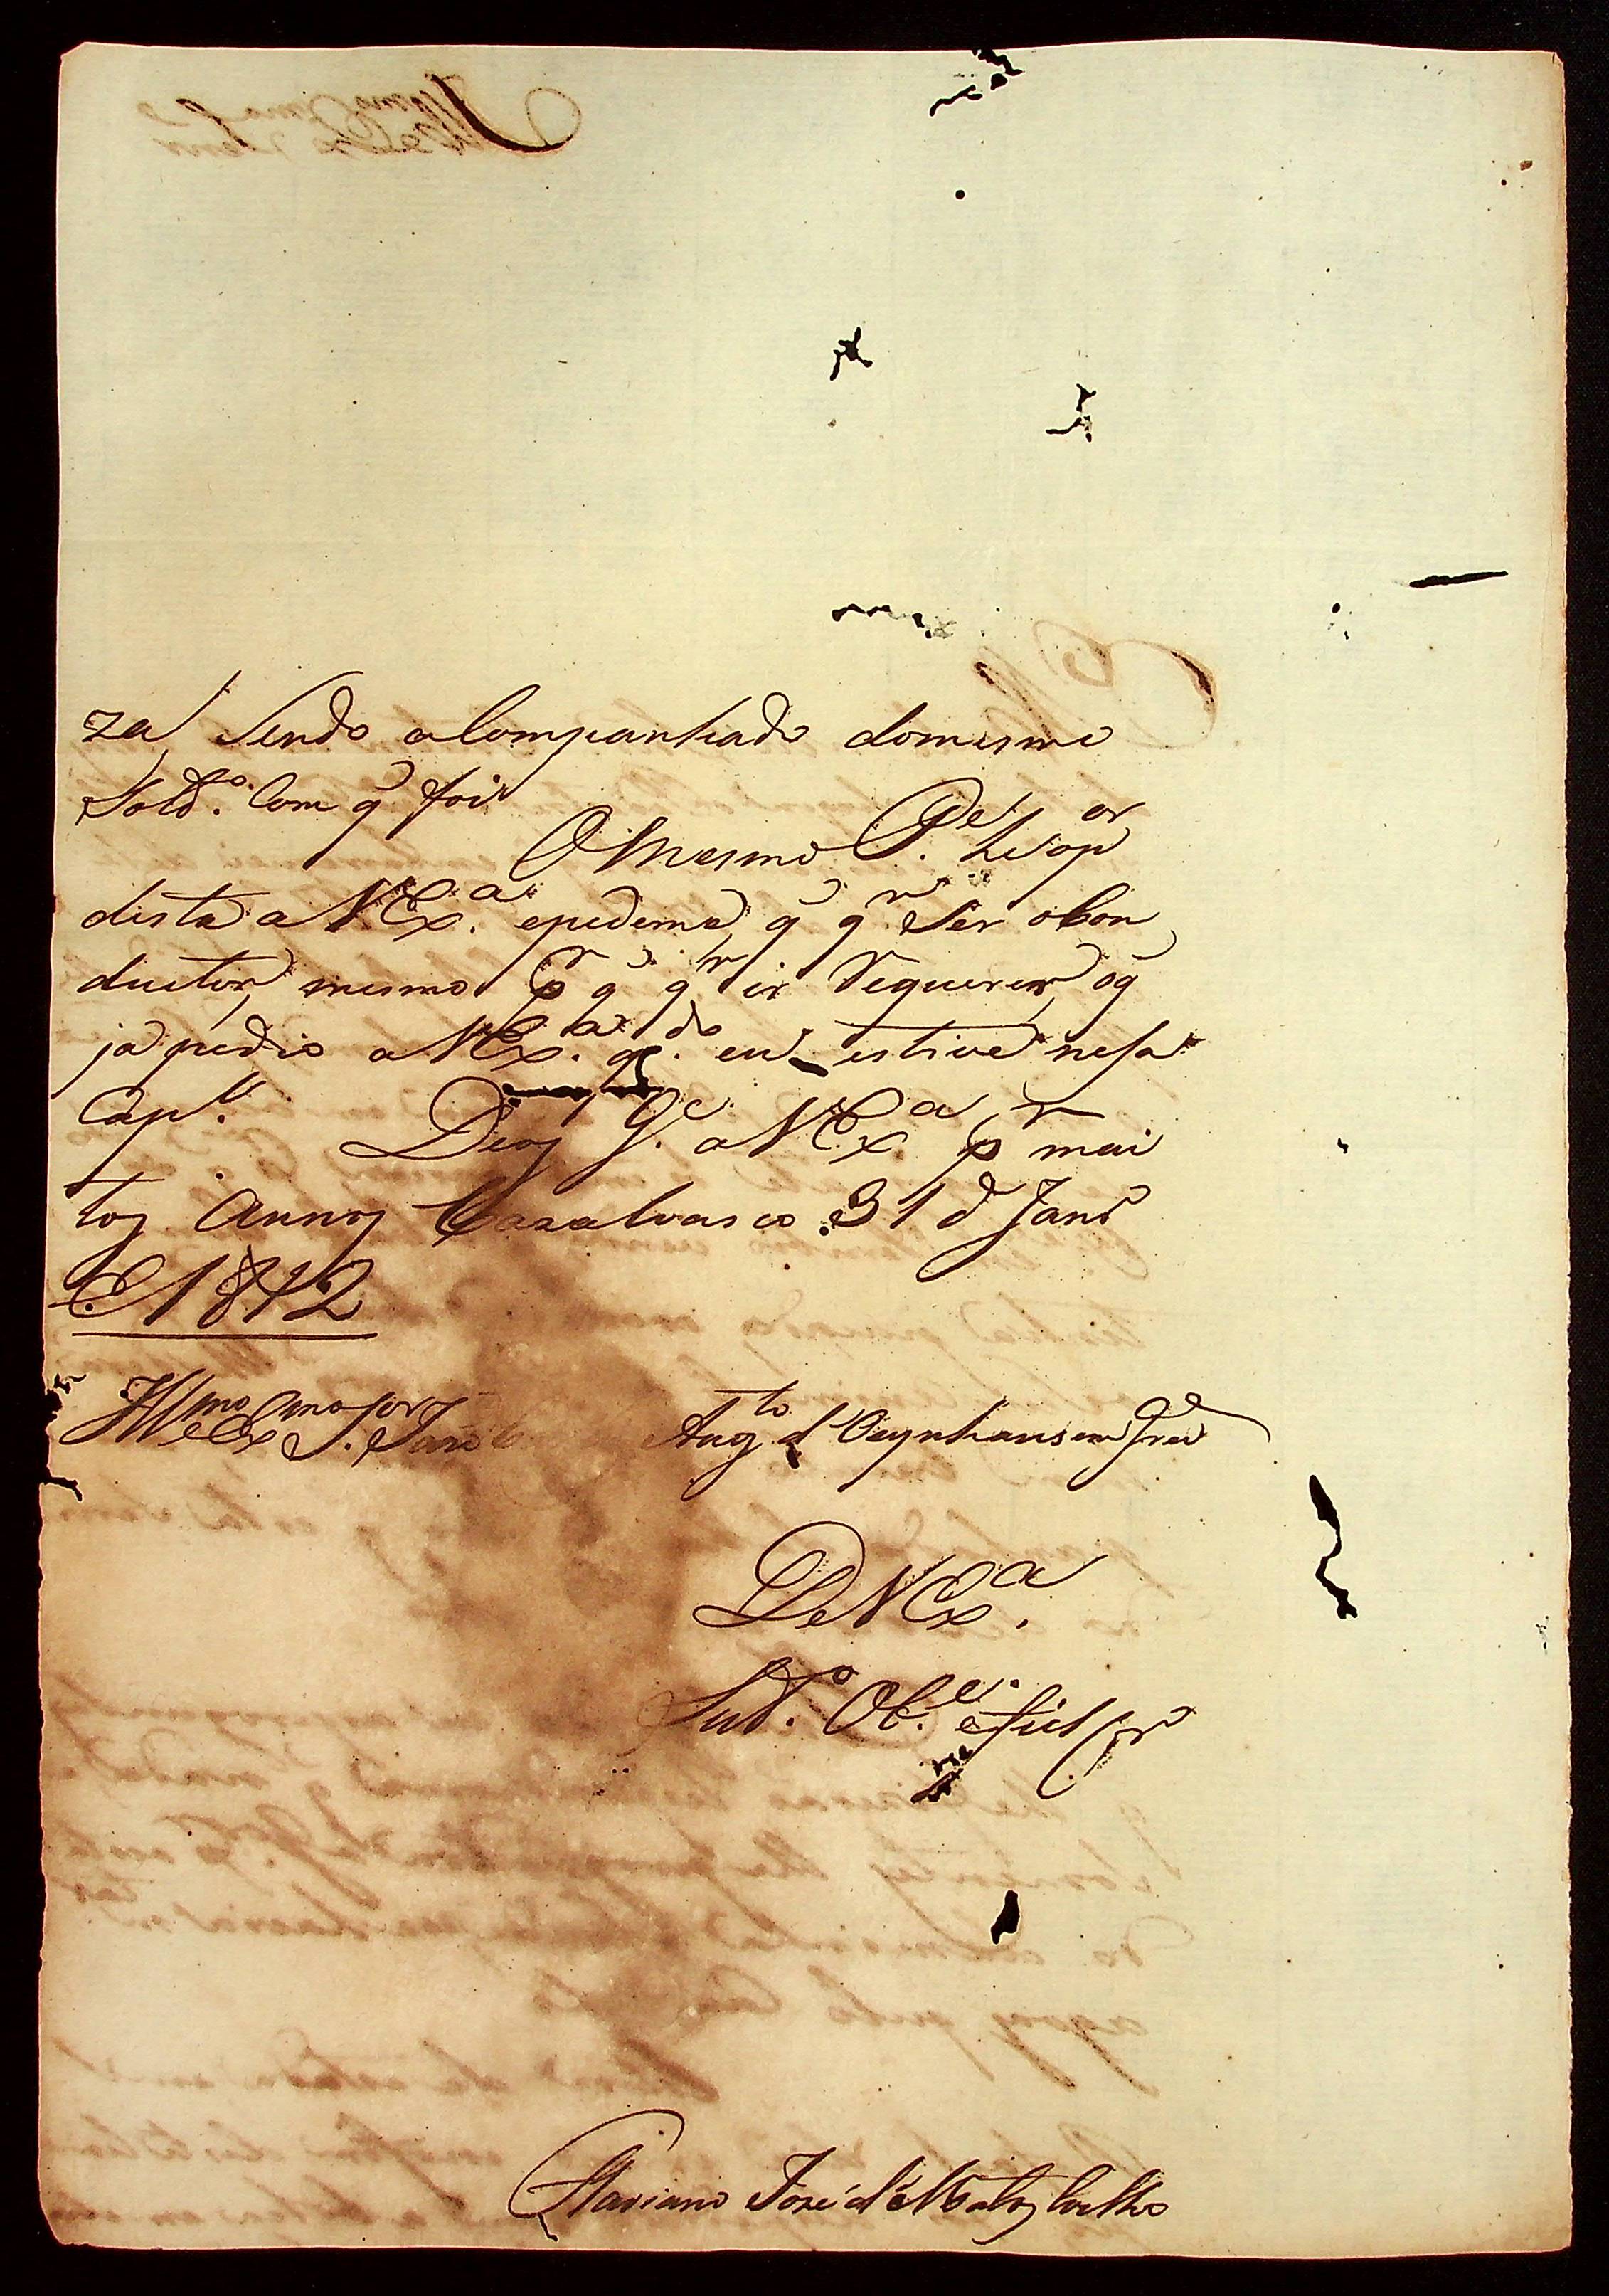 za, Sendo acompanhado domesmo
Sold.º Com q̃ foi
OMesmo P.e he o por
dista a VEx.a epedeme, q̃ q.r Ser o Con
ductor, mesmo p.r q̃ q.r ir requerer, oq̃
ja pedio a VEx.a q.do eu estive nesa
Cap.l
Deos G.e a VEx.a p.r mui
tos Annos Cazalvasco 31 d Janr.º
d 1812
Ill.mo e Ex.mo S.or João
Aug.to d'Oeynhausem
DeVEx.a
Sud.º Ob.e efiel
Mariano José d'Matos Coelho